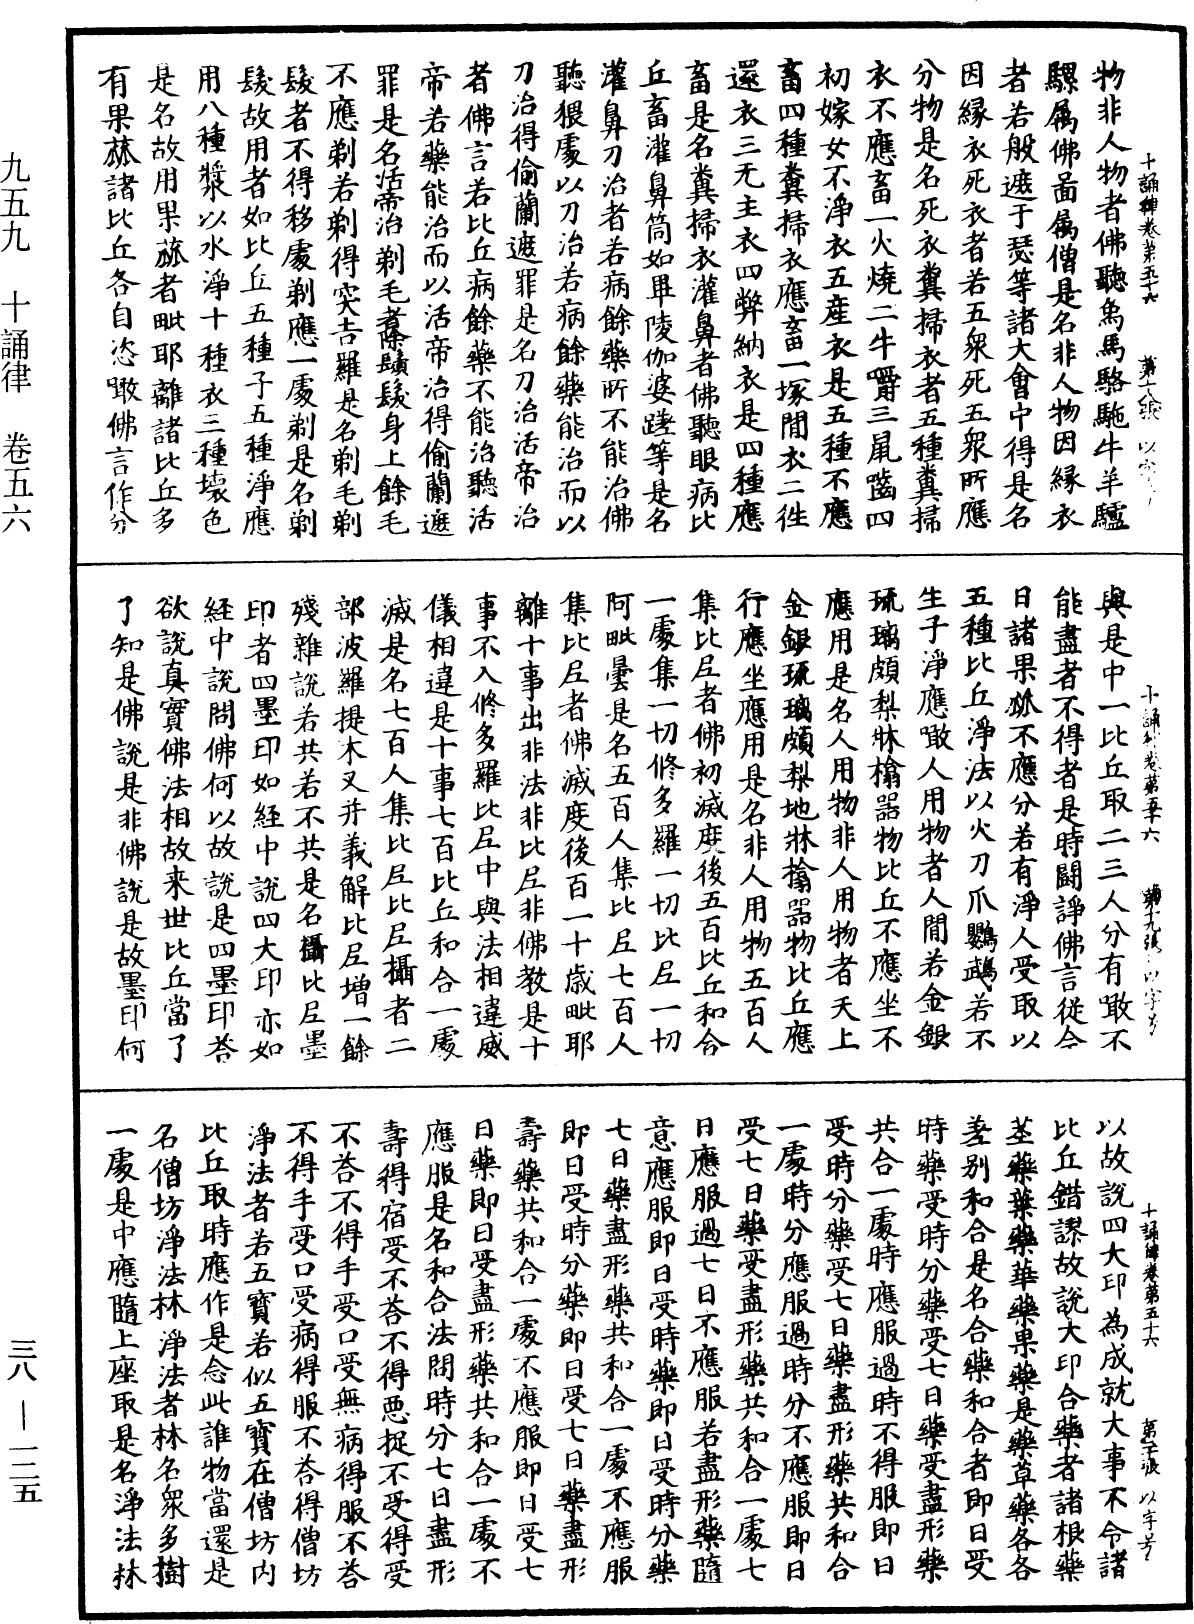 九五九　十誦律　卷五六
三八—一二五
十誦律卷第五十六　第十八張　以字号
物非人物者佛聽烏馬駱駞牛羊驢
騾属佛啚属僧是名非人物因緣衣
者若般遮于瑟等諸大會中得是名
因緣衣死衣者若五衆死五衆所應
分物是名死衣糞掃衣者五種糞掃
衣不應畜一火燒二牛嚼三鼠齧四
初嫁女不淨衣五産衣是五種不應
畜四種糞掃衣應畜一塚間衣二徃
還衣三无主衣四弊納衣是四種應
畜是名糞掃衣灌鼻者佛聽眼病比
丘畜灌鼻筒如畢陵伽婆蹉等是名
灌鼻刀治者若病餘藥所不能治佛
聽猥處以刀治若病餘藥能治而以
刀治得偷蘭遮罪是名刀治活帝治
者佛言若比丘病餘藥不能治聽活
帝若藥能治而以活帝治得偷蘭遮
罪是名活帝治剃毛者除鬚髮身上餘毛
不應剃若剃得突吉羅是名剃毛剃
髮者不得移處剃應一處剃是名剃
髮故用者如比丘五種子五種淨應
用八種漿以水淨十種衣三種壞色
是名故用果蓏者毗耶離諸比丘多
有果蓏諸比丘各自恣噉佛言作分
十誦律卷第五十六　第十九張　以字号
與是中一比丘取二三人分有噉不
能盡者不得者是時鬪諍佛言從今
日諸果蓏不應分若有淨人受取以
五種比丘淨法以火刀爪鸚鵡若不
生子淨應噉人用物者人間若金銀
琉璃頗梨牀榻器物比丘不應坐不
應用是名人用物非人用物者天上
金銀琉璃頗梨地牀榻器物比丘應
行應坐應用是名非人用物五百人
集比尼者佛初滅度後五百比丘和合
一處集一切修多羅一切比尼一切
阿毗曇是名五百人集比尼七百人
集比尼者佛滅度後百一十歲毗耶
離十事出非法非比尼非佛教是十
事不入修多羅比尼中與法相違威
儀相違是十事七百比丘和合一處
滅是名七百人集比尼比尼攝者二
部波羅提木叉并義解比尼增一餘
殘雜說若共若不共是名攝比尼墨
印者四墨印如經中說四大印亦如
經中說問佛何以故說是四墨印荅
欲說真實佛法相故来世比丘當了
了知是佛說是非佛說是故墨印何
十誦律卷第五十六　第二十張　以字号
以故說四大印為成就大事不令諸
比丘錯謬故說大印合藥者諸根藥
莖藥葉藥華藥果藥是藥草藥各各
差别和合是名合藥和合者即日受
時藥受時分藥受七日藥受盡形藥
共合一處時應服過時不得服即日
受時分藥受七日藥盡形藥共和合
一處時分應服過時分不應服即日
受七日藥受盡形藥共和合一處七
日應服過七日不應服若盡形藥隨
意應服即日受時藥即日受時分藥
七日藥盡形藥共和合一處不應服
即日受時分藥即日受七日藥盡形
壽藥共和合一處不應服即日受七
日藥即日受盡形藥共和合一處不
應服是名和合法問時分七日盡形
壽得宿受不荅不得惡捉不受得受
不荅不得手受口受無病得服不荅
不得手受口受病得服不荅得僧坊
淨法者若五寶若似五寶在僧坊内
比丘取時應作是念此誰物當還是
名僧坊淨法林淨法者林名衆多樹
一處是中應隨上座取是名淨法林